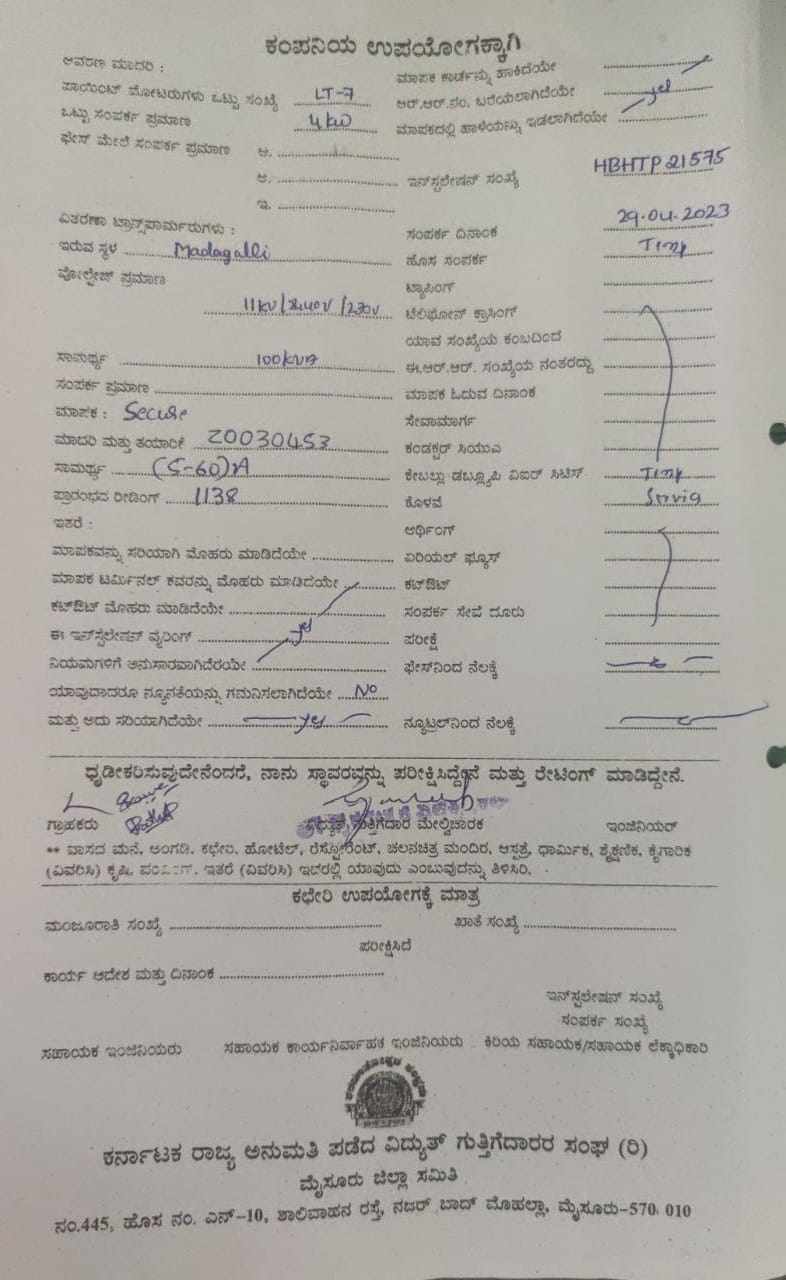 ಕಂಪನಿಯ ಉಪಯೋಗಕ್ಕಾಗಿ
ಆವರಣ ಮಾದರಿ :
ಮಾಪಕ ಕಾರ್ಡನ್ನು ಹಾಕಿದೆಯೇ
ಪಾಯಿಂಟ್ ಮೋಟರುಗಳು ಒಟ್ಟು ಸಂಖ್ಯೆ LT-7
ಆರ್.ಆರ್.ನಂ. ಬರೆಯಲಾಗಿದೆಯೇ yes
ಒಟ್ಟು ಸಂಪರ್ಕ ಪ್ರಮಾಣ 4kW
ಮಾಪಕದಲ್ಲಿ ಹಾಳೆಯನ್ನು ಇಡಲಾಗಿದೆಯೇ
ಫೇಸ್ ಮೇಲೆ ಸಂಪರ್ಕ ಪ್ರಮಾಣ ಅ.
ಆ.
ಇನ್‌ಸ್ಟಲೇಷನ್ ಸಂಖ್ಯೆ HBHTP21575
ಇ.
ವಿತರಣಾ ಟ್ರಾನ್ಸ್‌ಪಾರ್ಮರುಗಳು :
ಸಂಪರ್ಕ ದಿನಾಂಕ 29.04.2023
ಇರುವ ಸ್ಥಳ Madagalli
ಹೊಸ ಸಂಪರ್ಕ Temp
ವೋಲ್ಟೇಜ್ ಪ್ರಮಾಣ
ಟ್ಯಾಪಿಂಗ್
11kV/440V/230V
ಟೆಲಿಫೋನ್ ಕ್ರಾಸಿಂಗ್
ಯಾವ ಸಂಖ್ಯೆಯ ಕಂಬದಿಂದ
ಸಾಮರ್ಥ್ಯ 100KVA
ಈ.ಆರ್.ಆರ್. ಸಂಖ್ಯೆಯ ನಂತರದ್ದು
ಸಂಪರ್ಕ ಪ್ರಮಾಣ
ಮಾಪಕ ಓದುವ ದಿನಾಂಕ
ಮಾಪಕ : Secure
ಸೇವಾಮಾರ್ಗ
ಮಾದರಿ ಮತ್ತು ತಯಾರಿಕೆ 20030453
ಕಂಡಕ್ಟರ್ ಸಿಯುಎ
ಸಾಮರ್ಥ್ಯ (5-60)A
ಕೇಬಲ್ಲು ಡಬ್ಲ್ಯೂಪಿ ವಿಐರ್ ಸಿಟಿಸ್ Temp
ಪ್ರಾರಂಭದ ರೀಡಿಂಗ್ 1138
ಕೊಳವೆ Servic
ಇತರೆ :
ಅರ್ಥಿಂಗ್
ಮಾಪಕವನ್ನು ಸರಿಯಾಗಿ ಮೊಹರು ಮಾಡಿದೆಯೇ
ಏರಿಯಲ್ ಫ್ಯೂಸ್
ಮಾಪಕ ಟರ್ಮಿನಲ್ ಕವರನ್ನು ಮೊಹರು ಮಾಡಿದೆಯೇ
ಕಟ್‌ಔಟ್
ಕಟ್‌ಔಟ್ ಮೊಹರು ಮಾಡಿದೆಯೇ
ಸಂಪರ್ಕ ಸೇವೆ ದೂರು
ಈ ಇನ್‌ಸ್ಟಲೇಷನ್ ವೈರಿಂಗ್ yes
ಪರೀಕ್ಷೆ
ನಿಯಮಗಳಿಗೆ ಅನುಸಾರವಾಗಿದೆರಯೇ
ಫೇಸ್‌ನಿಂದ ನೆಲಕ್ಕೆ
ಯಾವುದಾದರೂ ನ್ಯೂನತೆಯನ್ನು ಗಮನಿಸಲಾಗಿದೆಯೇ No
ಮತ್ತು ಅದು ಸರಿಯಾಗಿದೆಯೇ yes
ನ್ಯೂಟ್ರಲ್‌ನಿಂದ ನೆಲಕ್ಕೆ
ಧೃಡೀಕರಿಸುವುದೇನೆಂದರೆ, ನಾನು ಸ್ಥಾವರವನ್ನು ಪರೀಕ್ಷಿಸಿದ್ದೇನೆ ಮತ್ತು ರೇಟಿಂಗ್ ಮಾಡಿದ್ದೇನೆ.
ಗ್ರಾಹಕರು ವಿದ್ಯುತ್ ಗುತ್ತಿಗೆದಾರ ಮೇಲ್ವಿಚಾರಕ ಇಂಜಿನಿಯರ್
** ವಾಸದ ಮನೆ, ಅಂಗಡಿ, ಕಛೇರಿ, ಹೋಟೆಲ್, ರೆಸ್ಟೋರೆಂಟ್, ಚಲನಚಿತ್ರ ಮಂದಿರ, ಆಸ್ಪತ್ರೆ, ಧಾರ್ಮಿಕ, ಶೈಕ್ಷಣಿಕ, ಕೈಗಾರಿಕ
(ವಿವರಿಸಿ) ಕೃಷಿ, ಪಂಪಿಂಗ್, ಇತರೆ (ವಿವರಿಸಿ) ಇವರಲ್ಲಿ ಯಾವುದು ಎಂಬುವುದನ್ನು ತಿಳಿಸಿರಿ.
ಕಛೇರಿ ಉಪಯೋಗಕ್ಕೆ ಮಾತ್ರ
ಮಂಜೂರಾತಿ ಸಂಖ್ಯೆ ಖಾತೆ ಸಂಖ್ಯೆ
ಪರೀಕ್ಷಿಸಿದೆ
ಕಾರ್ಯ ಆದೇಶ ಮತ್ತು ದಿನಾಂಕ
ಇನ್‌ಸ್ಟಲೇಷನ್ ಸಂಖ್ಯೆ
ಸಂಪರ್ಕ ಸಂಖ್ಯೆ
ಸಹಾಯಕ ಇಂಜಿನಿಯರು ಸಹಾಯಕ ಕಾರ್ಯನಿರ್ವಾಹಕ ಇಂಜಿನಿಯರು ಕಿರಿಯ ಸಹಾಯಕ/ಸಹಾಯಕ ಲೆಕ್ಕಾಧಿಕಾರಿ
ಕರ್ನಾಟಕ ರಾಜ್ಯ ಅನುಮತಿ ಪಡೆದ ವಿದ್ಯುತ್ ಗುತ್ತಿಗೆದಾರರ ಸಂಘ (ರಿ)
ಮೈಸೂರು ಜಿಲ್ಲಾ ಸಮಿತಿ
ನಂ.445, ಹೊಸ ನಂ. ಎನ್-10, ಶಾಲಿವಾಹನ ರಸ್ತೆ, ನಜರ್ ಬಾದ್ ಮೊಹಲ್ಲಾ, ಮೈಸೂರು-570 010